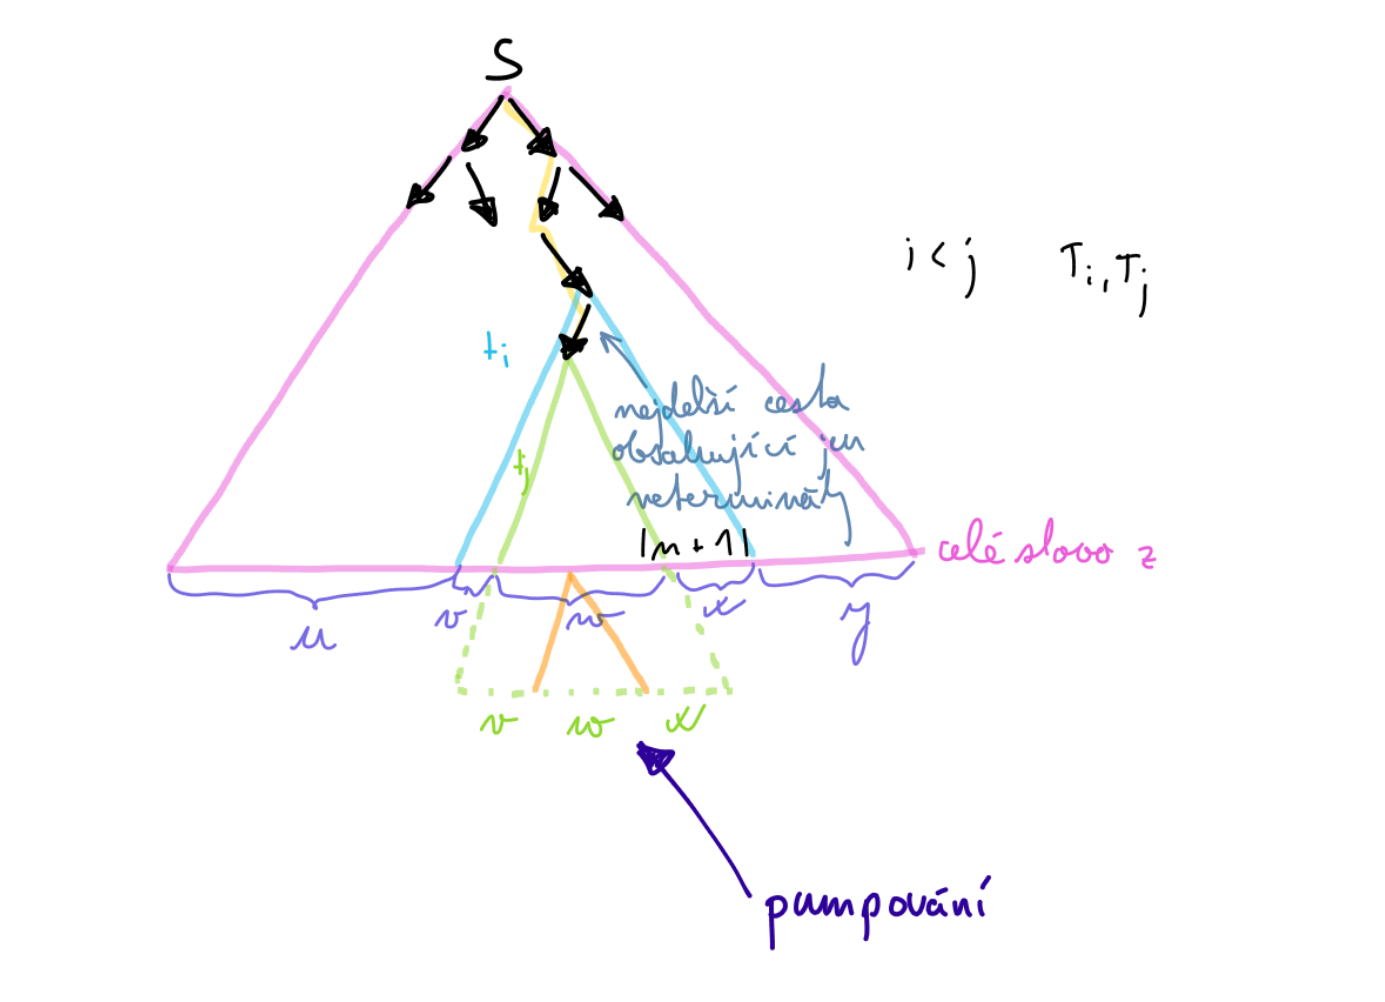 S
i < j    Ti, Tj
ti
nejdelší cesta
obsahující jen
tj
neterminály
|n + 1|
celé slovo z
u v w x y
v w x
pumpování